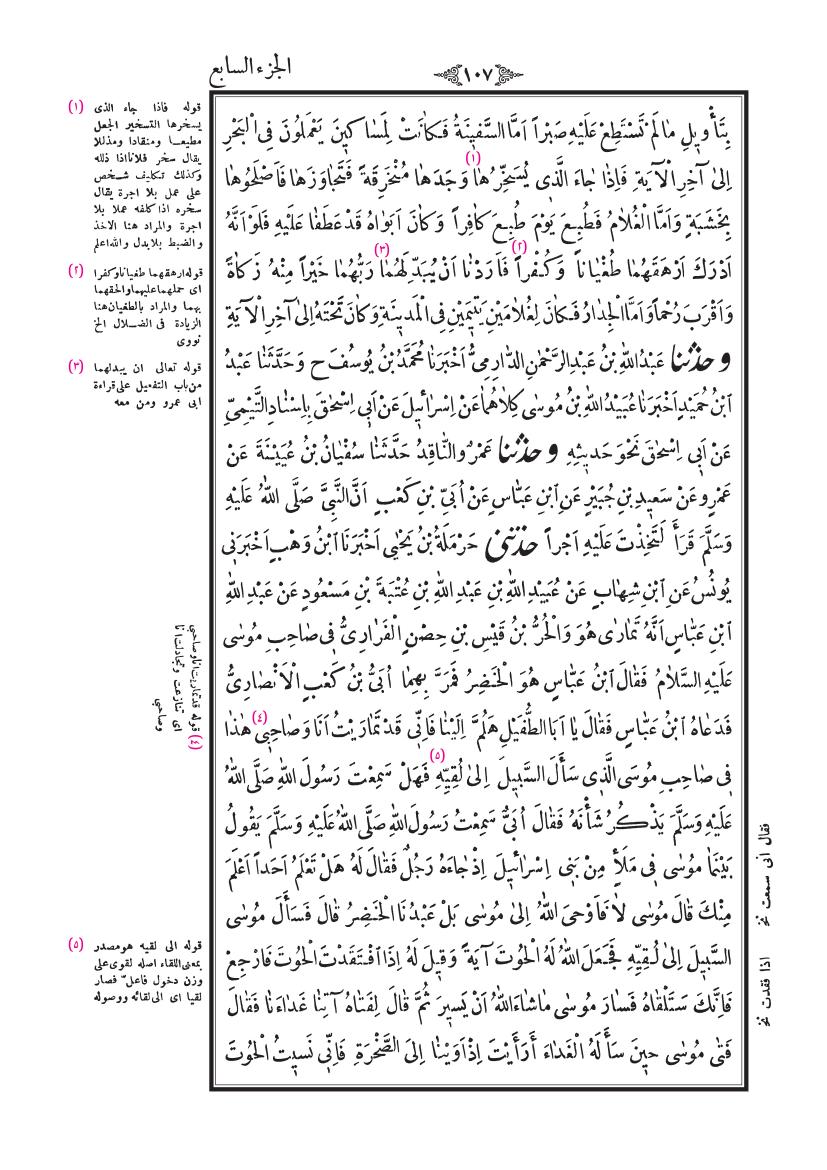 الجزء السابع
١٠٧
بِتَأْوِيلِ مَا لَمْ تَسْتَطِعْ عَلَيْهِ صَبْراً اَمَّا السَّفِينَةُ فَكَانَتْ لِمَسَاكِينَ يَعْمَلُونَ فِى الْبَحْرِ
اِلىٰ آخِرِ الْآيَةِ فَاِذَا جَاءَ الَّذِى يُسَخِّرُهَا (١) وَجَدَهَا مُنْخَرِقَةً فَتَجَاوَزَهَا فَاَصْلَحُوهَا
بِخَشَبَةٍ وَاَمَّا الْغُلَامُ فَطُبِعَ يَوْمَ طُبِعَ كَافِراً وَكَانَ اَبَوَاهُ قَدْ عَطَفَا عَلَيْهِ فَلَوْ اَنَّهُ
اَدْرَكَ اَرْهَقَهُمَا طُغْيَاناً وَكُفْراً (٢) فَاَرَدْنَا اَنْ يُبَدِّلَهُمَا (٣) رَبُّهُمَا خَيْراً مِنْهُ زَكَاةً
وَاَقْرَبَ رُحْماً وَاَمَّا الْجِدَارُ فَكَانَ لِغُلَامَيْنِ يَتِيمَيْنِ فِى الْمَدِينَةِ وَكَانَ تَحْتَهُ اِلىٰ آخِرِ الْآيَةِ
و حدثنا عَبْدُ اللهِ بْنُ عَبْدِ الرَّحْمٰنِ الدَّارِمِىُّ اَخْبَرَنَا مُحَمَّدُ بْنُ يُوسُفَ ح وَحَدَّثَنَا عَبْدُ
ابْنُ حُمَيْدٍ اَخْبَرَنَا عُبَيْدُ اللهِ بْنُ مُوسىٰ كِلَاهُمَا عَنْ اِسْرَائِيلَ عَنْ اَبِى اِسْحٰقَ بِاِسْنَادِ التَّيْمِىِّ
عَنْ اَبِى اِسْحٰقَ نَحْوَ حَدِيثِهِ و حدثنا عَمْرٌو النَّاقِدُ حَدَّثَنَا سُفْيَانُ بْنُ عُيَيْنَةَ عَنْ
عَمْرٍو عَنْ سَعِيدِ بْنِ جُبَيْرٍ عَنِ ابْنِ عَبَّاسٍ عَنْ اُبَىِّ بْنِ كَعْبٍ اَنَّ النَّبِىَّ صَلَّى اللهُ عَلَيْهِ
وَسَلَّمَ قَرَأَ لَتَخِذْتَ عَلَيْهِ اَجْراً حدثنى حَرْمَلَةُ بْنُ يَحْيٰى اَخْبَرَنَا ابْنُ وَهْبٍ اَخْبَرَنِى
يُونُسُ عَنِ ابْنِ شِهَابٍ عَنْ عُبَيْدِ اللهِ بْنِ عَبْدِ اللهِ بْنِ عُتْبَةَ بْنِ مَسْعُودٍ عَنْ عَبْدِ اللهِ
ابْنِ عَبَّاسٍ اَنَّهُ تَمَارٰى هُوَ وَالْحُرُّ بْنُ قَيْسِ بْنِ حِصْنٍ الْفَزَارِىُّ فِى صَاحِبِ مُوسىٰ
عَلَيْهِ السَّلَامُ فَقَالَ ابْنُ عَبَّاسٍ هُوَ الْخَضِرُ فَمَرَّ بِهِمَا اُبَىُّ بْنُ كَعْبٍ الْاَنْصَارِىُّ
فَدَعَاهُ ابْنُ عَبَّاسٍ فَقَالَ يَا اَبَا الطُّفَيْلِ هَلُمَّ اِلَيْنَا فَاِنِّى قَدْ تَمَارَيْتُ اَنَا وَصَاحِبِى (٤) هٰذَا
فِى صَاحِبِ مُوسَى الَّذِى سَأَلَ السَّبِيلَ اِلىٰ لُقِيِّهِ (٥) فَهَلْ سَمِعْتَ رَسُولَ اللهِ صَلَّى اللهُ
عَلَيْهِ وَسَلَّمَ يَذْكُرُ شَأْنَهُ فَقَالَ اُبَىٌّ سَمِعْتُ رَسُولَ اللهِ صَلَّى اللهُ عَلَيْهِ وَسَلَّمَ يَقُولُ
بَيْنَمَا مُوسىٰ فِى مَلَأٍ مِنْ بَنِى اِسْرَائِيلَ اِذْ جَاءَهُ رَجُلٌ فَقَالَ لَهُ هَلْ تَعْلَمُ اَحَداً اَعْلَمَ
مِنْكَ قَالَ مُوسىٰ لَا فَاَوْحَى اللهُ اِلىٰ مُوسىٰ بَلْ عَبْدُنَا الْخَضِرُ قَالَ فَسَأَلَ مُوسىٰ
السَّبِيلَ اِلىٰ لُقِيِّهِ فَجَعَلَ اللهُ لَهُ الْحُوتَ آيَةً وَقِيلَ لَهُ اِذَا افْتَقَدْتَ الْحُوتَ فَارْجِعْ
فَاِنَّكَ سَتَلْقَاهُ فَسَارَ مُوسىٰ مَا شَاءَ اللهُ اَنْ يَسِيرَ ثُمَّ قَالَ لِفَتَاهُ آتِنَا غَدَاءَنَا فَقَالَ
فَتٰى مُوسىٰ حِينَ سَأَلَهُ الْغَدَاءَ أَرَأَيْتَ اِذْ اَوَيْنَا اِلَى الصَّخْرَةِ فَاِنِّى نَسِيتُ الْحُوتَ
(١) قوله فاذا جاء الذى
يسخرها التسخير الجعل
مطيعا ومنقادا ومذللا
يقال سخر فلانا اذا ذلله
وكذلك تكليف شخص
على عمل بلا اجرة يقال
سخره اذا كلفه عملا بلا
اجرة والمراد هنا الاخذ
والضبط بلا بدل والله اعلم
(٢) قوله ارهقهما طغيانا وكفرا
اى حملهما عليهما والحقهما
بهما والمراد بالطغيان هنا
الزيادة فى الضلال الخ
نووى
(٣) قوله تعالى ان يبدلهما
من باب التفعيل على قراءة
ابى عمرو ومن معه
(٤) قوله قد تماريت انا وصاحبى
اى تنازعت وتجادلت انا
وصاحبى
(٥) قوله الى لقيه هو مصدر
بمعنى اللقاء اصله لقوى على
وزن دخول فاعلّ فصار
لقيا اى الى لقائه ووصوله
فقال انى سمعت نخ
اذا فقدت نخ